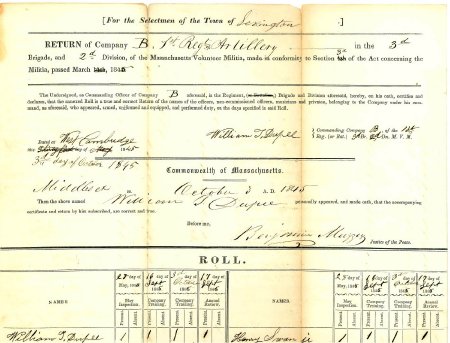 [For the Selectmen of the Town of Lexington .]
RETURN of Company B, 1st Regt Artillery in the 3d
Brigade, and 2d Division, of the Massachusetts Volunteer Militia, made in conformity to Section of the Act concerning the
Militia, passed March 1845
The Undersigned, as Commanding Officer of Company B aforesaid, in the Regiment, Brigade and Division aforesaid, hereby, on his oath, certifies and
declares, that the annexed Roll is a true and correct Return of the names of the officers, non-commissioned officers, musicians and privates, belonging to the Company under his com-
mand, as aforesaid, who appeared, armed, uniformed and equipped, and performed duty, on the days specified in said Roll.
Dated at West Cambridge
William T. Dupee Commanding Company B of the 1st
3d day of October 1845
Reg. M. V. M.
Commonwealth of Massachusetts.
Middlesex ss. October 3 A. D. 1845
Then the above named William T. Dupee personally appeared, and made oath, that the accompanying
certificate and return by him subscribed, are correct and true.
Before me,
Benjamin Muzzey Justice of the Peace.
ROLL.
NAMES. 28 day May, 1845 16 Sept 1845 3d October 1845 17 Sept 1845 NAMES. 28 day May, 1845 16 Sept 1845 3d October 1845 17 Sept 1845
May Inspection. Company Training. Company Training. Annual Review. May Inspection. Company Training. Company Training. Annual Review.
Present. Absent. Present. Absent. Present. Absent. Present. Absent. Present. Absent. Present. Absent. Present. Absent. Present. Absent.
William T. Dupee 1 1 1 1 Henry Swan jr 1 1 1 1